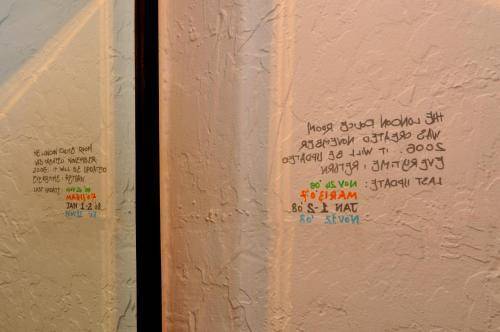 THE LONDON POLICE ROOM
WAS CREATED NOVEMBER
2006. IT WILL BE UPDATED
EVERYTIME I RETURN
LAST UPDATE:
JAN 1-2 '08
THE LONDON POLICE ROOM
WAS CREATED NOVEMBER
2006. IT WILL BE UPDATED
EVERYTIME I RETURN
LAST UPDATE: NOV 26 '06
MAR 13 '07
JAN 1-2 '08
NOV 12 '08